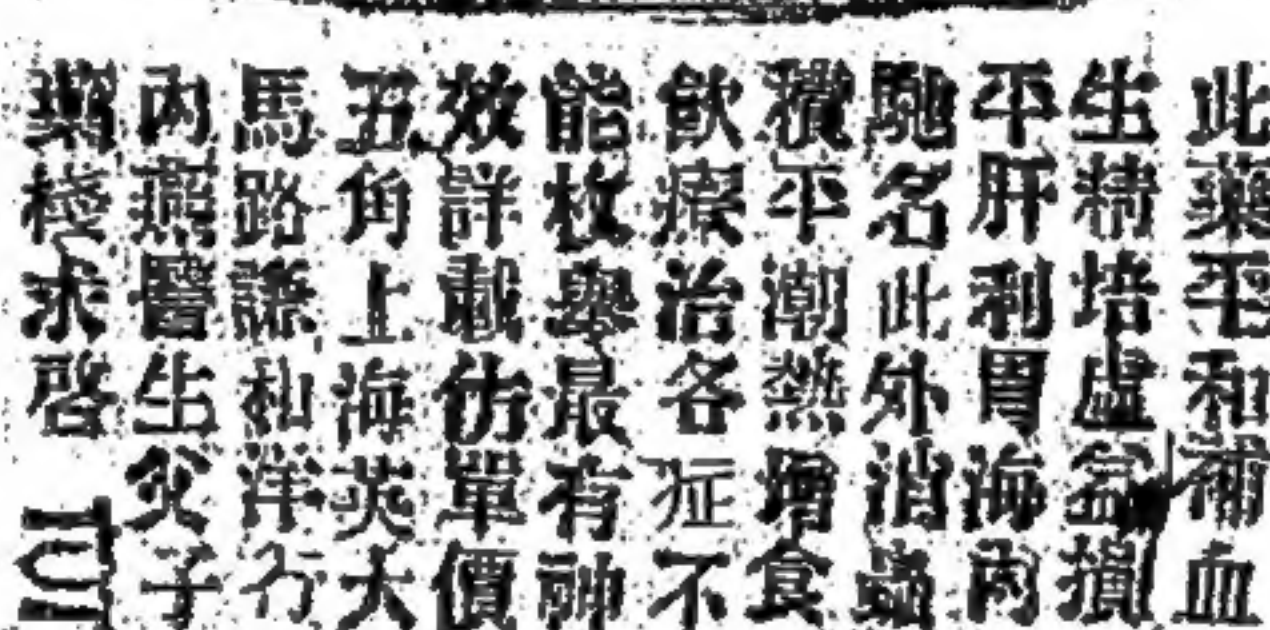 此藥平和補血
生精培虛益損
平肝利胃海內
馳名此外消蟲
積平潮熱增食
飲療治各症不
能枚舉最有神
效詳載仿單價
五角上海英大
馬路謙和洋行
內燕醫生炙子
藥棧求啓